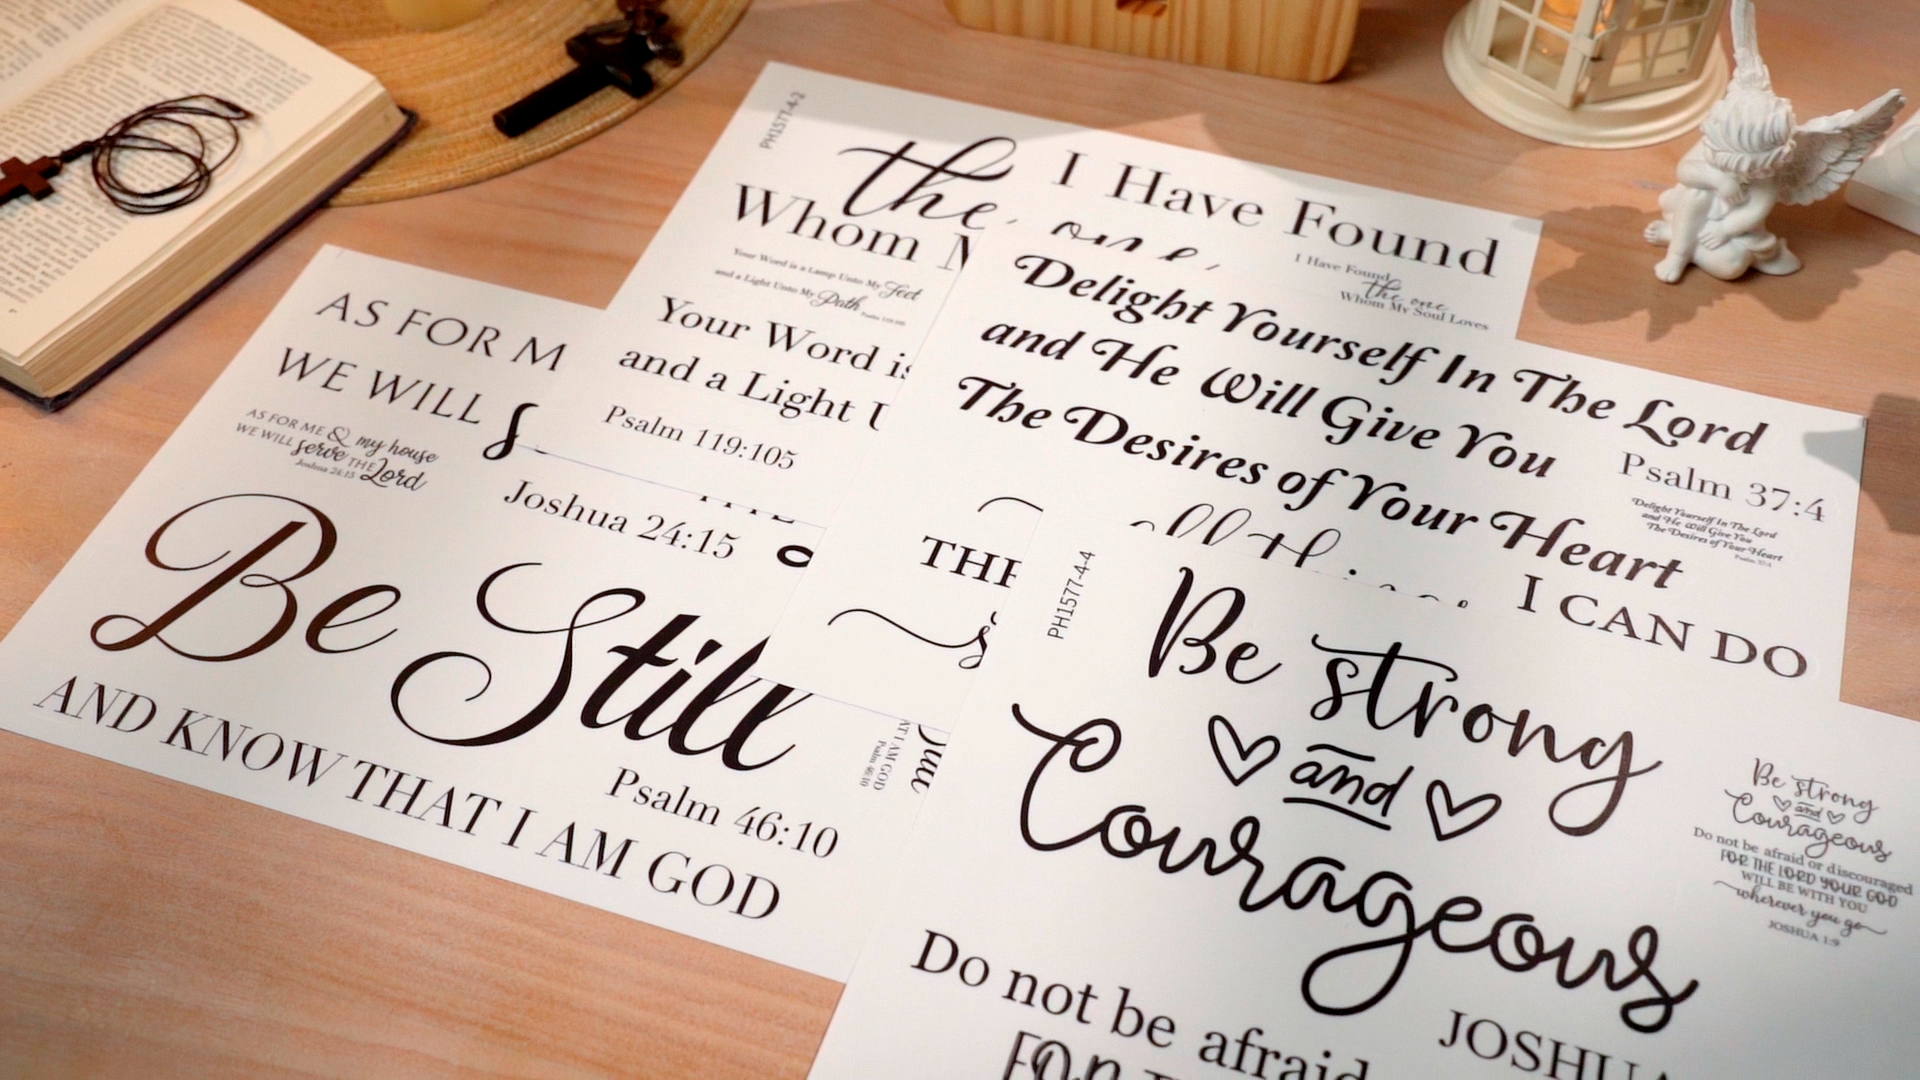 PH1577-4-2
the
Whom
Your Word is a Lamp Unto My Feet
and a Light Unto My Path
Psalm 119:105
Your Word is
and a Light
Psalm 119:105
I Have Found
one
I Have Found
the one
Whom My Soul Loves
Delight Yourself In The Lord
and He Will Give You
The Desires of Your Heart
Psalm 37:4
Delight Yourself In The Lord
and He Will Give You
The Desires of Your Heart
Psalm 37:4
I CAN DO
AS FOR M
WE WILL
AS FOR ME & my house
WE WILL serve THE Lord
Joshua 24:15
Joshua 24:15
Be Still
AND KNOW THAT I AM GOD
Psalm 46:10
AT I AM GOD
Psalm 46:10
PH1577-4-4
Be strong
and
Courageous
Do not be afraid
JOSHUA
Be strong
and
Courageous
Do not be afraid or discouraged
FOR THE LORD YOUR GOD
WILL BE WITH YOU
wherever you go
JOSHUA 1:9